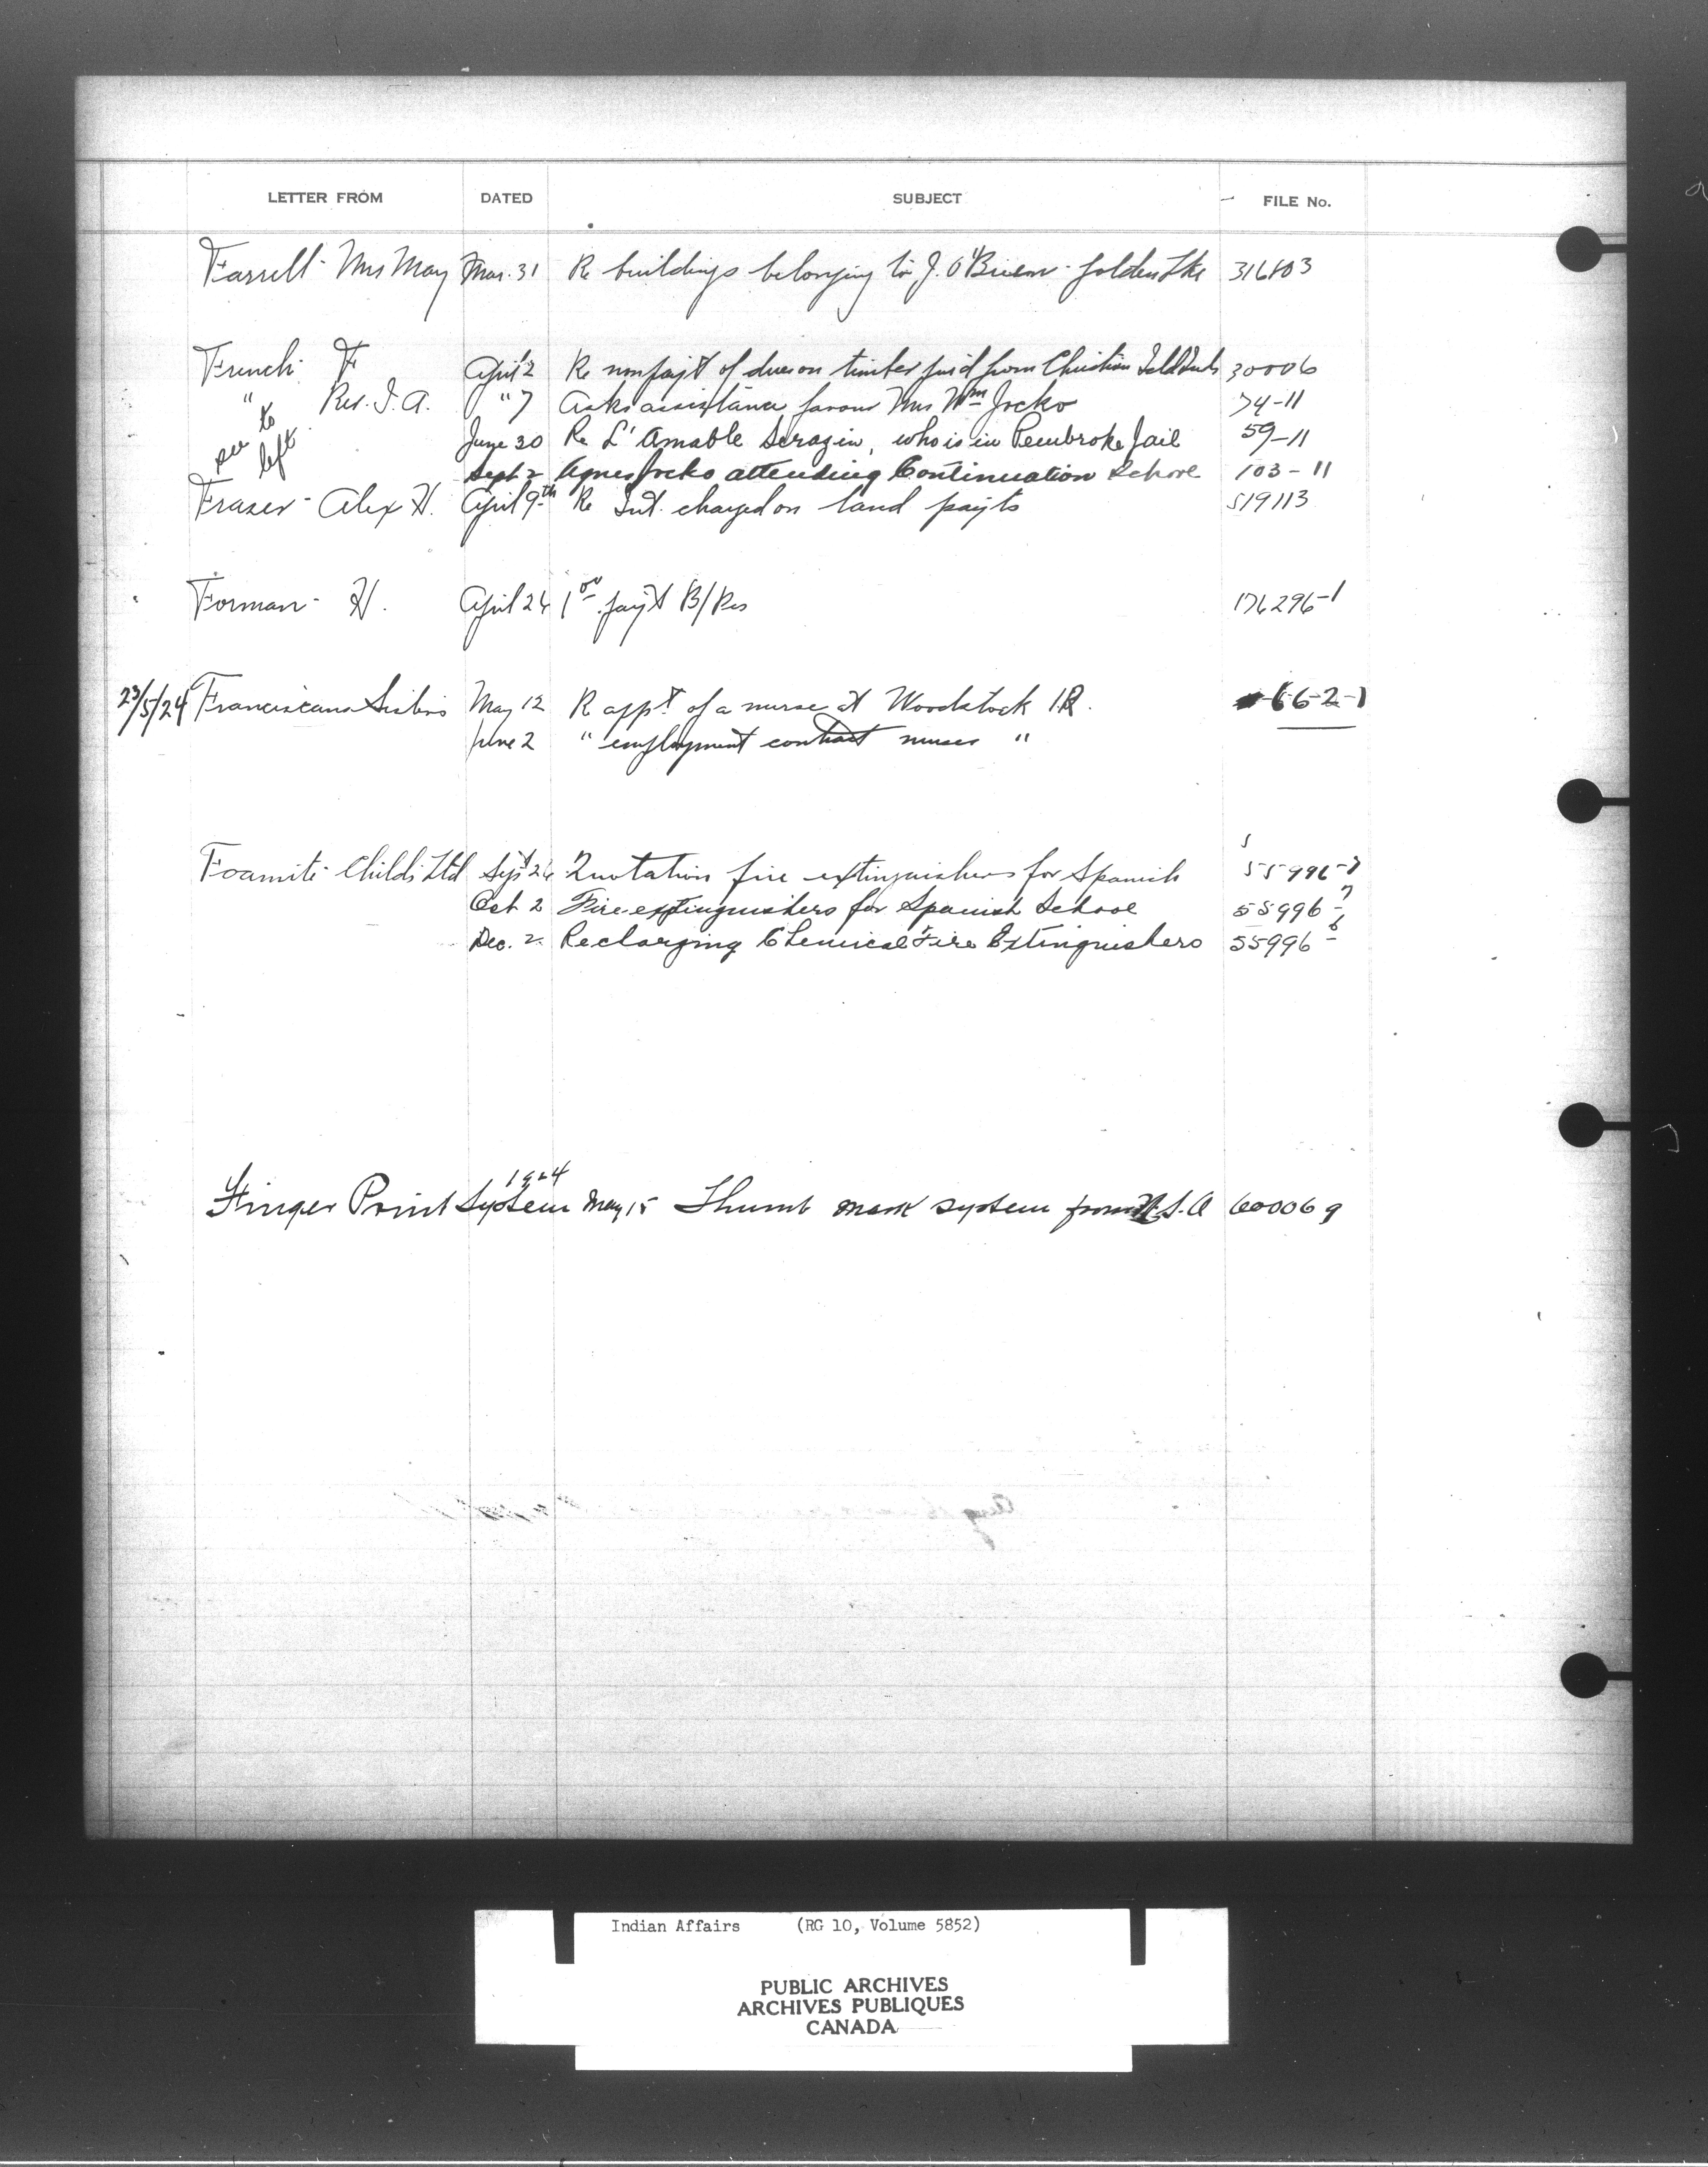 LETTER FROM DATED SUBJECT FILE No.
Farrell - Mrs May Mar. 31 Re buildings belonging to J. O'Brien - Golden Lke 316103
French F April 2 Re nonpayt of dues on timber from Christian Isld 30006
" Rev. I. A. " 7 Asks assistance favour Mrs Wm Jocko 74-11
to left June 30 Re L'Amable Scrazin, who is in Pembroke Jail 59-11
Sept 2 Agnes Jocko attending Continuation School 103-11
Fraser - Alex H. April 9th Re Int. charged on land payts 519113
Forman - H. April 24 payt B/Res 176296-1
23/5/24 Franciscan Sisters May 12 R appt of a nurse at Woodstock I.R. 66-2-1
June 2 " employment contract nurses "
Foamite Childs Ltd Sept 26 Quotation fire extinguishers for Spanish 55996-7
Oct 2 Fire extinguishers for Spanish School 55996-7
Dec. 2 Recharging Chemical Fire Extinguishers 55996-6
1924
Finger Print System May 15 Thumb mark system from U.S.A 60006 9
Indian Affairs (RG 10, Volume 5852)
PUBLIC ARCHIVES
ARCHIVES PUBLIQUES
CANADA